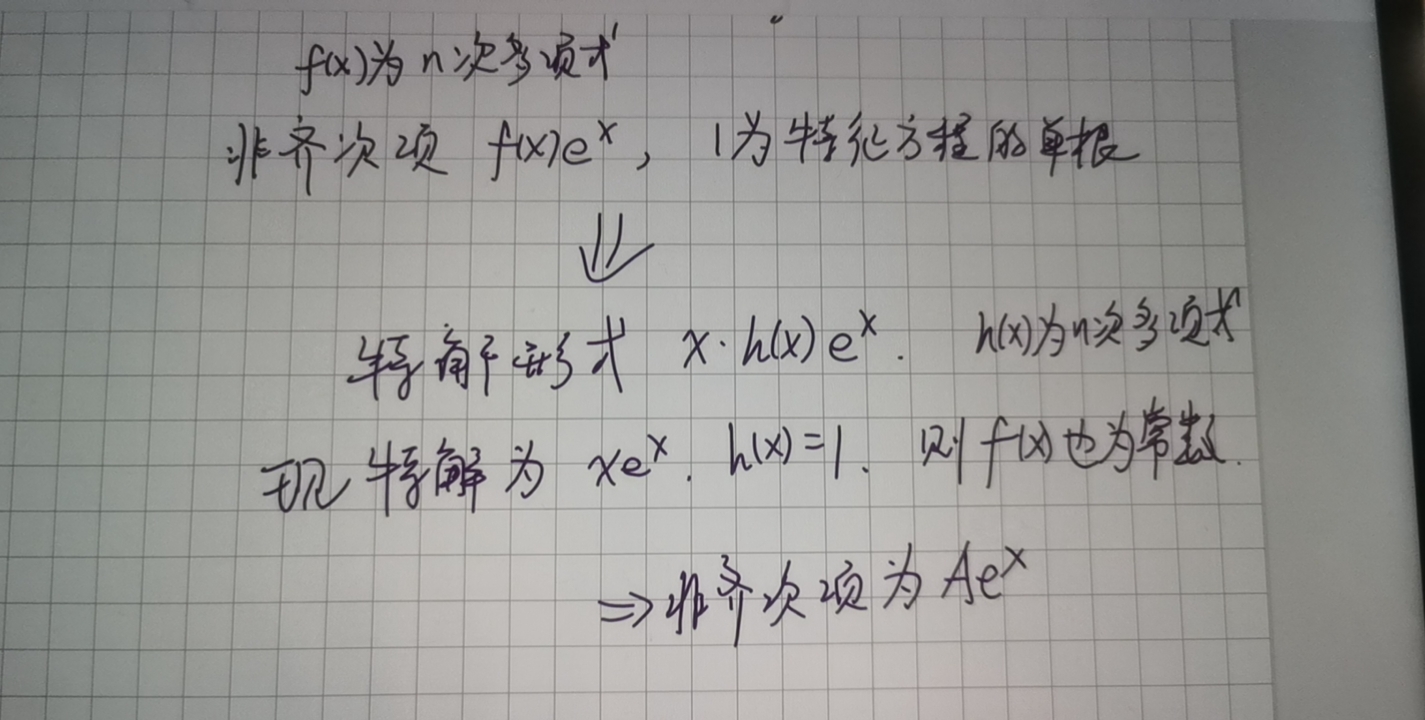 f(x)为n次多项式
非齐次项 f(x)eˣ, 1为特征方程的单根
⇓
特解形式 x·h(x)eˣ. h(x)为n次多项式
现特解为 xeˣ. h(x)=1. 则f(x)也为常数.
⇒非齐次项为 Aeˣ